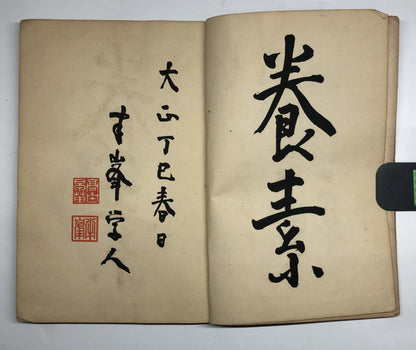 養素
大正丁巳春日
半峯学人